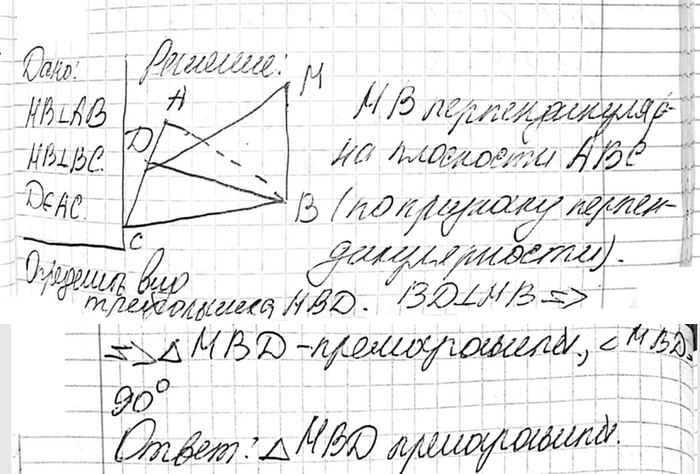 Дано:
Решение:
MB⊥AB
MB⊥BC
D∈AC.
A
M
D
B
C
MB перпендикуляр-
на плоскости ABC
(по признаку перпен-
дикулярности).
Определить вид
треугольника MBD. BD⊥MB =>
=> △ MBD - прямоугольный, ∠ MBD =
90°
Ответ: △ MBD прямоугольный.